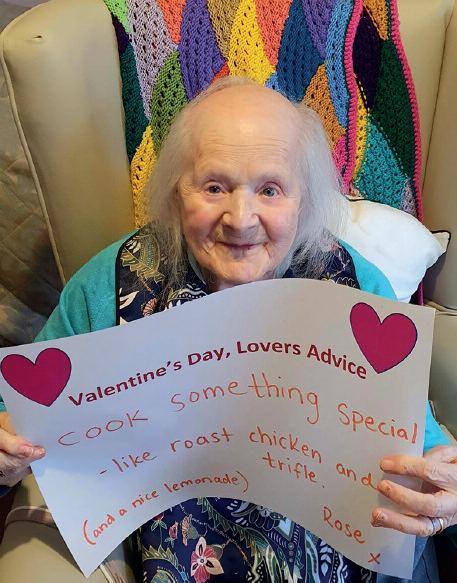 Valentine's Day, Lovers Advice
Cook something special
- like roast chicken and
trifle.
(and a nice lemonade)
Rose
x